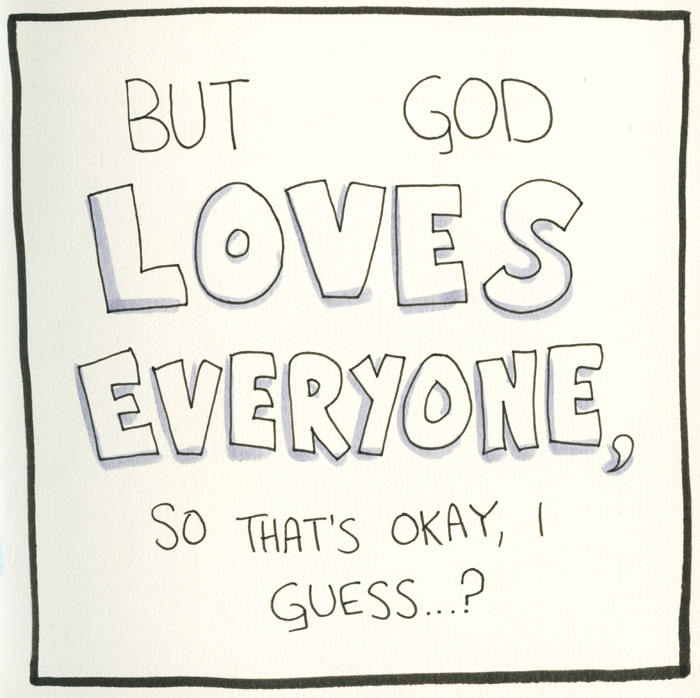 BUT GOD
LOVES
EVERYONE,
SO THAT'S OKAY, I
GUESS...?